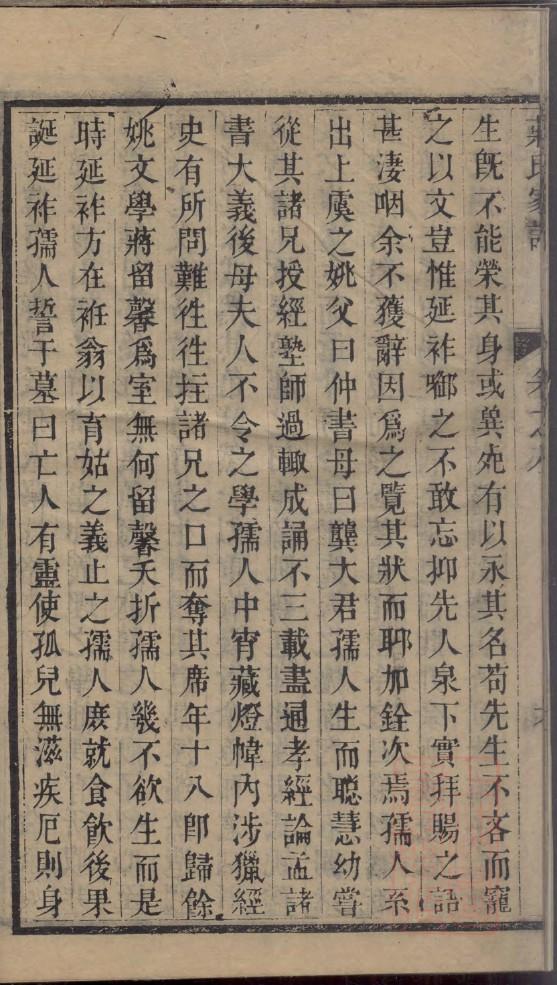 生旣不能榮其身或兾死有以永其名苟先生不吝而寵
之以文豈惟延祚啣之不敢忘抑先人泉下實拜賜之語
甚凄咽余不獲辭因爲之覽其狀而聊加銓次焉孺人系
出上虞之姚父曰仲書母曰龔大君孺人生而聰慧幼嘗
從其諸兄授經塾師過輙成誦不三載盡通孝經論孟諸
書大義後母夫人不令之學孺人中宵藏燈幃內涉獵經
史有所問難徃徃拄諸兄之口而奪其席年十八卽歸餘
姚文學蔣留馨爲室無何留馨夭折孺人幾不欲生而是
時延祚方在袵翁以育姑之義止之孺人庶就食飮後果
誕延祚孺人誓于墓曰亡人有靈使孤兒無滋疾厄則身